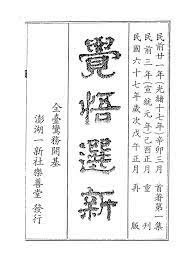 民前廿一年(光緒十七年)辛卯三月　首著第一集
民前三年(宣統元年)己酉正月　重刊
民國六十七年歲次戊午正月　再版
覺悟選新
全臺鸞務開基
澎湖一新社樂善堂　發行